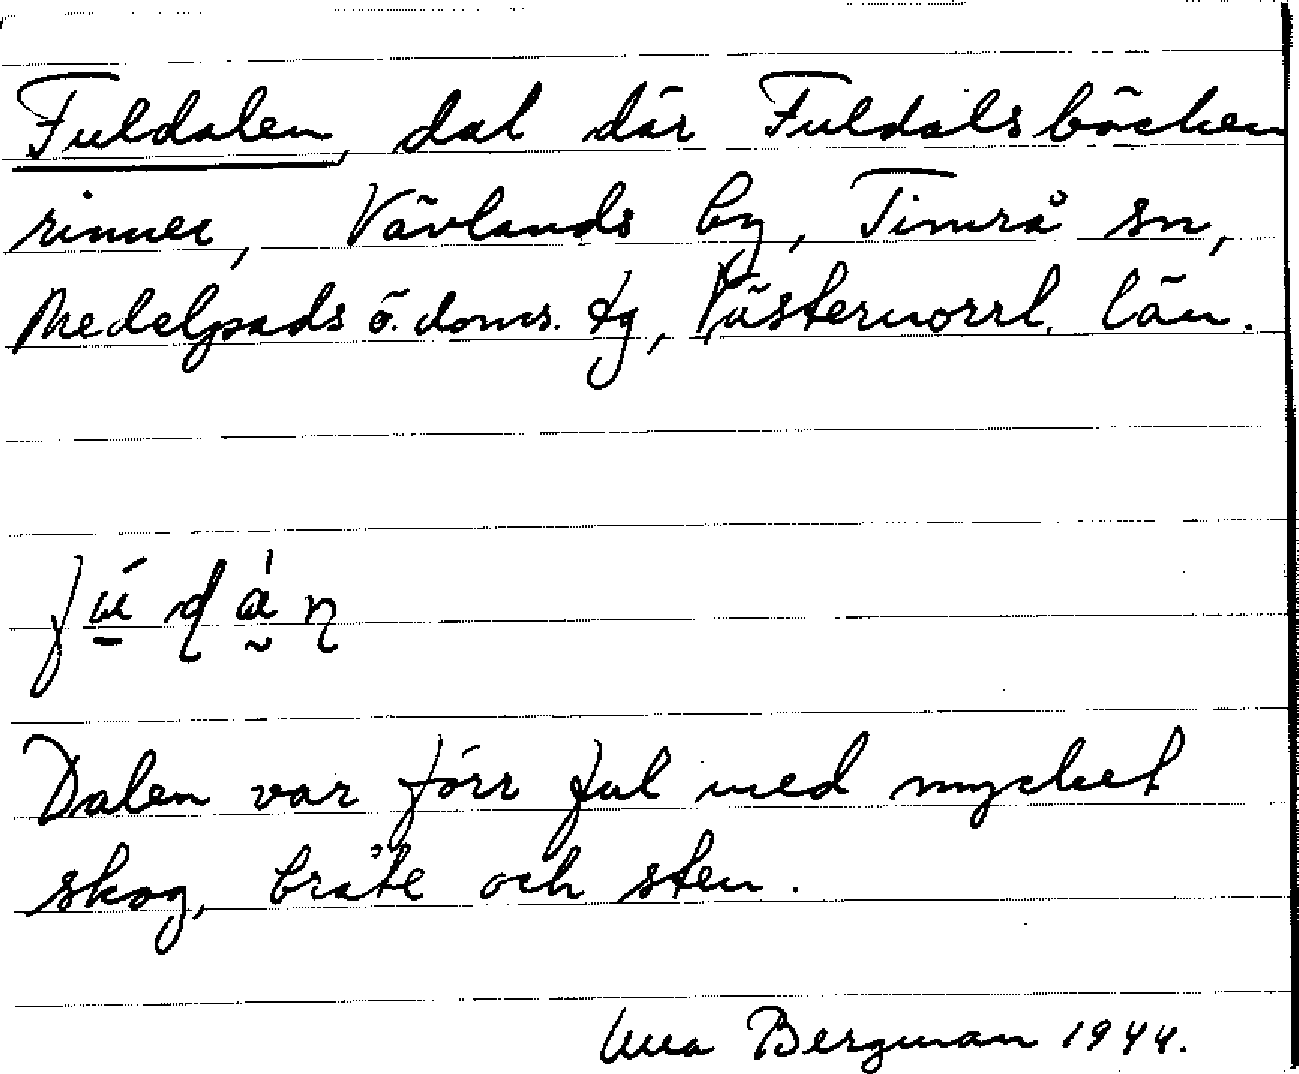 Fuldalen, dal där Fuldalsbäcken
rinner, Vävlands by, Timrå sn,
Medelpads ö. doms. tg, Västernorrl. län.
Dalen var förr ful med mycket
skog, bråte och sten.
Bergman 1944.